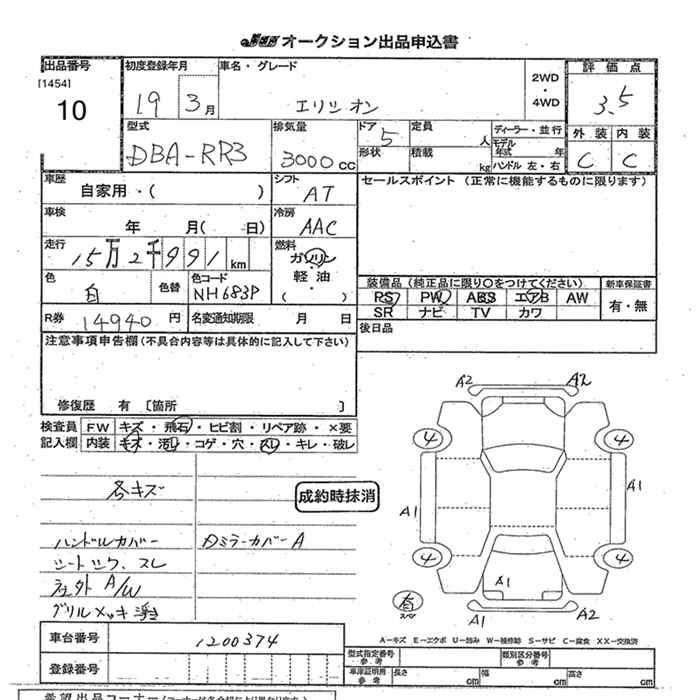 オークション出品申込書
出品番号
[1454]
10
初度登録年月
19 3月
車名・グレード
エリシオン
2WD
・
4WD
評価点
3.5
型式
DBA-RR3
排気量
3000cc
ドア
5
定員
人
ディーラー・並行
モデル年式 年
形状
積載
kg
ハンドル 左・右
外装 内装
C C
車歴
自家用・( )
シフト
AT
セールスポイント (正常に機能するものに限ります)
車検
年 月( 日)
冷房
AAC
走行
15万2千991km
燃料
ガソリン
軽・油
( )
色
白
色替
色コード
NH683P
装備品(純正品に限り○をつけてください)
新車保証書
PS PW ABS エアB AW
SR ナビ TV カワ
有・無
R券
14940円
名変通知期限 月 日
後日品
注意事項申告欄(不具合内容等は具体的に記入して下さい)
修復歴 有 〔箇所 〕
検査員記入欄
FW キズ・飛石・ヒビ割・リペア跡・×要
内装 キズ・汚れ・コゲ・穴・スレ・キレ・破レ
各キズ
成約時抹消
ハンドルカバー
シートシワ、スレ
社外 A/W
グリルメッキ浮き
ミラーカバーA
A2 A2
4 4
A1 A1
4 4
A1
有
スペア
A1 A2
A-キズ E-エクボ U-凹み W-補修跡 S-サビ C-腐食 XX-交換済
車台番号
1200374
登録番号
型式指定番号
参考
類別区分番号
参考
車庫証明用
参考
長さ cm 幅 cm 高さ cm
希望出品コーナー